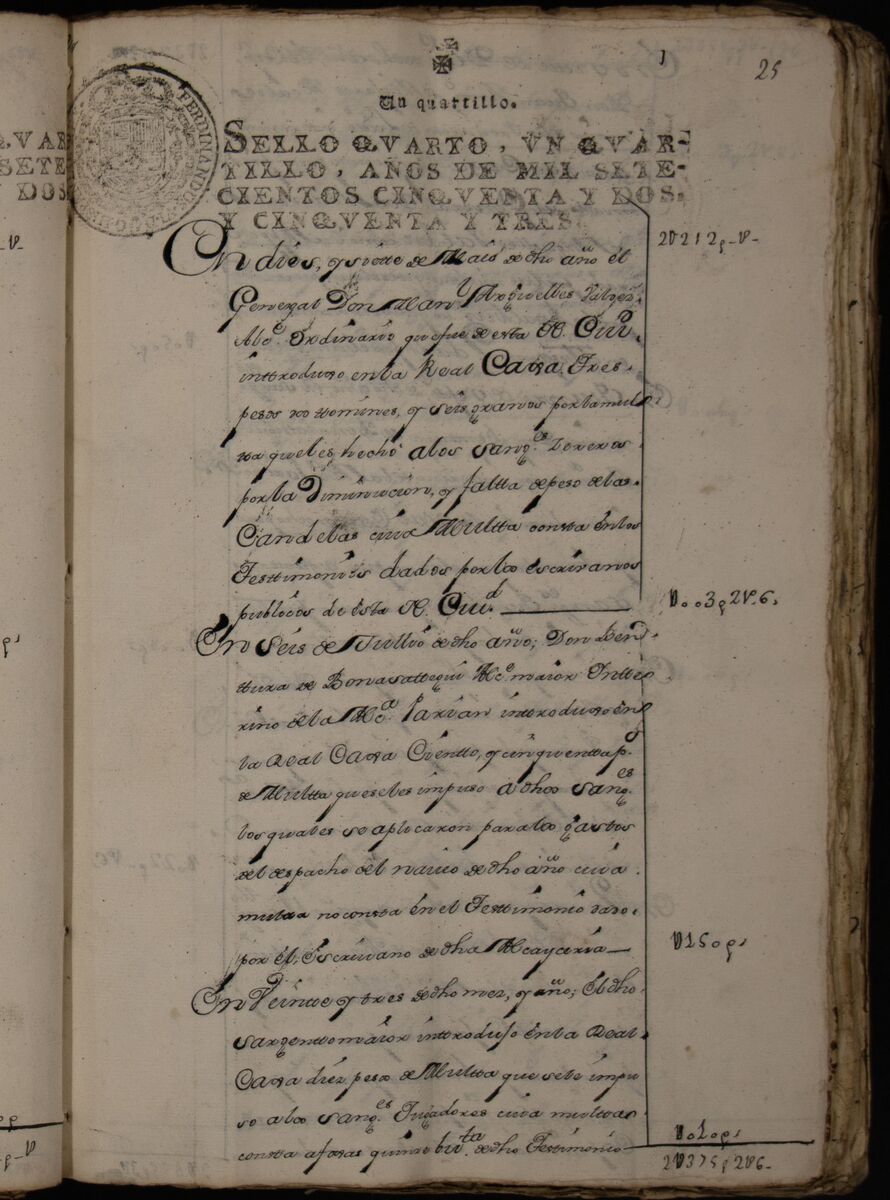 25
Un quartillo.
SELLO QVARTO, VN QVAR-
TILLO, AÑOS DE MIL SETE-
CIENTOS CINQVENTA Y DOS,
Y CINQVENTA Y TRES.
FERDINANDUS
QVAR
SETE
Y DOS
En dies, y siette de Maio de dho año el
General Don Man.l Arguelles Valges
Alc.e ordinario que fue de esta N. Ciu.d
introduxo en la Real Caxa Tres
pesos dos tomines, y seis granos por la mul
ta que les hechó a los Sang.es Cereros
por la Diminucion, y faltta de peso de las
Candelas cuia Multta consta en los
Testtimonios dados por los Escrivanos
publicos de esta N. Ciu.d
En Seis de Jullio de dho año; Don Ben
ttura de Bonasattegui Alc.e maior Intte
rino de la Alc.a Parian introduxo en
la Real Caxa Cientto, y cinquentta p.s
de Multta que se les impuso a dhos Sang.es
los quales se aplicaron para los gastos
del despacho del navio de dho año cuia
multa no consta en el Testtimonio dado
por el Escrivano de dha Alcayceria
En Veintte y tres de dho mez, y año; El dho
Sargentto maior introdujo en la Real
Caxa diez pesos de Multta que se le impu
so a los Sang.es Jugadores cuia multa
consta a foxas quinse bu.ta de dho Testimonio